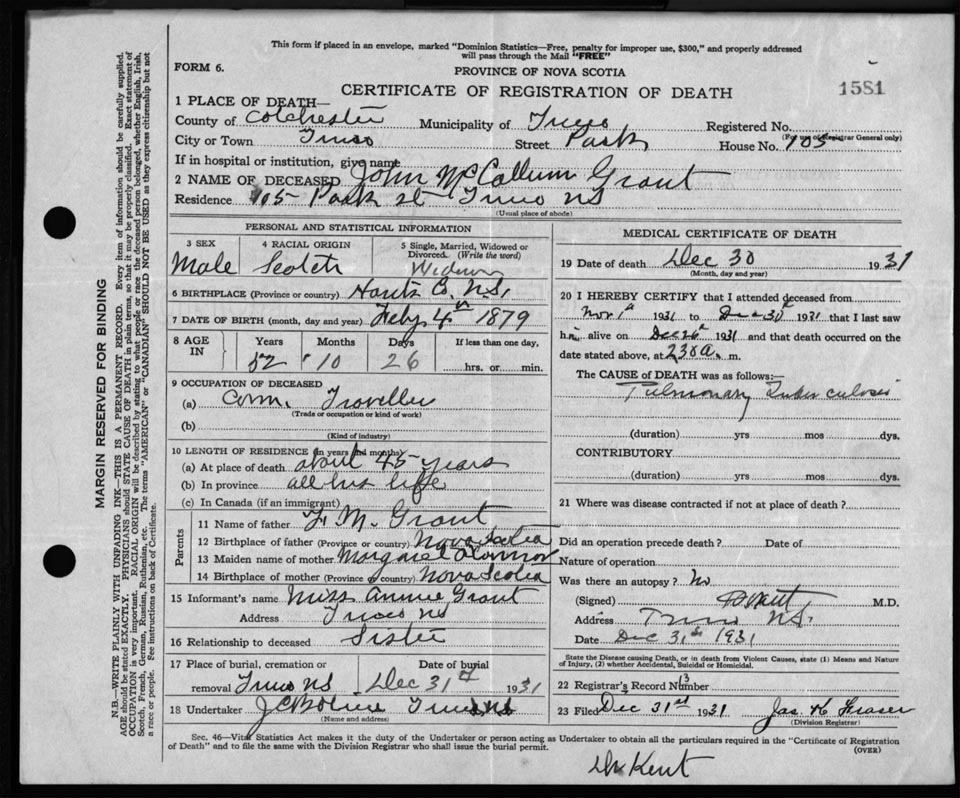 This form if placed in an envelope, marked "Dominion Statistics—Free, penalty for improper use, $300," and properly addressed
will pass through the Mail "FREE"
FORM 6.
PROVINCE OF NOVA SCOTIA
CERTIFICATE OF REGISTRATION OF DEATH
1581
1 PLACE OF DEATH—
County of Colchester Municipality of Truro Registered No.
(For use of Registrar General only)
City or Town Truro Street Park House No. 105
If in hospital or institution, give name
2 NAME OF DECEASED John McCallum Grant
Residence 105 Park St Truro NS
(Usual place of abode)
PERSONAL AND STATISTICAL INFORMATION
3 SEX
Male
4 RACIAL ORIGIN
Scotch
5 Single, Married, Widowed or
Divorced. (Write the word)
6 BIRTHPLACE (Province or country) Hants Co. N.S.
7 DATE OF BIRTH (month, day and year) Feby 4th 1879
8 AGE IN
Years Months Days If less than one day,
52 10 26 hrs. or min.
9 OCCUPATION OF DECEASED
(a) Com. Traveller
(Trade or occupation or kind of work)
(b)
(Kind of industry)
10 LENGTH OF RESIDENCE (in years and months)
(a) At place of death about 45 years
(b) In province all his life
(c) In Canada (if an immigrant)
Parents
11 Name of father M. Grant
12 Birthplace of father (Province or country) Nova Scotia
13 Maiden name of mother Margaret
14 Birthplace of mother (Province or country) Nova Scotia
15 Informant's name Miss Annie Grant
Address Truro NS
16 Relationship to deceased Sister
17 Place of burial, cremation or Date of burial
removal Truro NS Dec 31st 1931
18 Undertaker Truro NS
(Name and address)
MEDICAL CERTIFICATE OF DEATH
19 Date of death Dec 30 1931
(Month, day and year)
20 I HEREBY CERTIFY that I attended deceased from
Nov 1st 1931 to Dec 30th 1931 that I last saw
him alive on Dec 26th 1931 and that death occurred on the
date stated above, at 230 a. m.
The CAUSE of DEATH was as follows:—
Pulmonary Tuberculosis
(duration) yrs mos dys.
CONTRIBUTORY
(duration) yrs mos dys.
21 Where was disease contracted if not at place of death?
Did an operation precede death? Date of
Nature of operation
Was there an autopsy? No
(Signed) Kent M.D.
Address Truro N.S.
Date Dec 31st 1931
State the Disease causing Death, or in death from Violent Causes, state (1) Means and Nature
of Injury, (2) whether Accidental, Suicidal or Homicidal.
22 Registrar's Record Number 13
23 Filed Dec 31st 1931 Jas. K Fraser
(Division Registrar)
Sec. 46—Vital Statistics Act makes it the duty of the Undertaker or person acting as Undertaker to obtain all the particulars required in the "Certificate of Registration
of Death" and to file the same with the Division Registrar who shall issue the burial permit.
(OVER)
Dr Kent
MARGIN RESERVED FOR BINDING
N.B.—WRITE PLAINLY WITH UNFADING INK—THIS IS A PERMANENT RECORD. Every item of information should be carefully supplied.
AGE should be stated EXACTLY. PHYSICIANS should STATE CAUSE OF DEATH in plain terms, so that it may be properly classified. Exact statement of
OCCUPATION is very important. RACIAL ORIGIN will be described by stating to what people or race the deceased person belonged, whether English, Irish,
Scotch, French, German, Russian, Ruthenian, etc. The terms "AMERICAN" or "CANADIAN" SHOULD NOT BE USED as they express citizenship but not
a race or people. See instructions on back of Certificate.